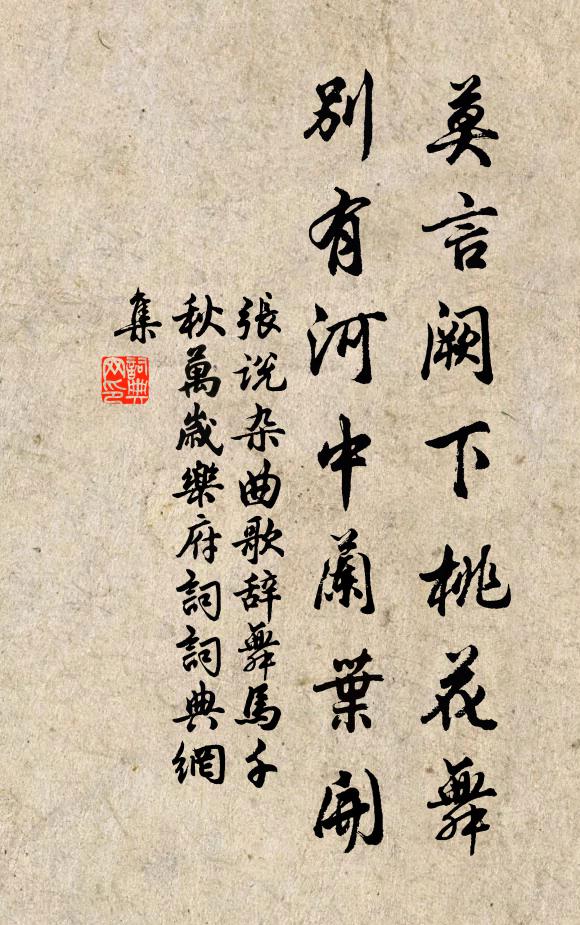 莫言阙下桃花舞
别有河中蘭葉開
張说杂曲歌辞舞馬千
秋萬歲樂府詞詞典網
集
詞典网印